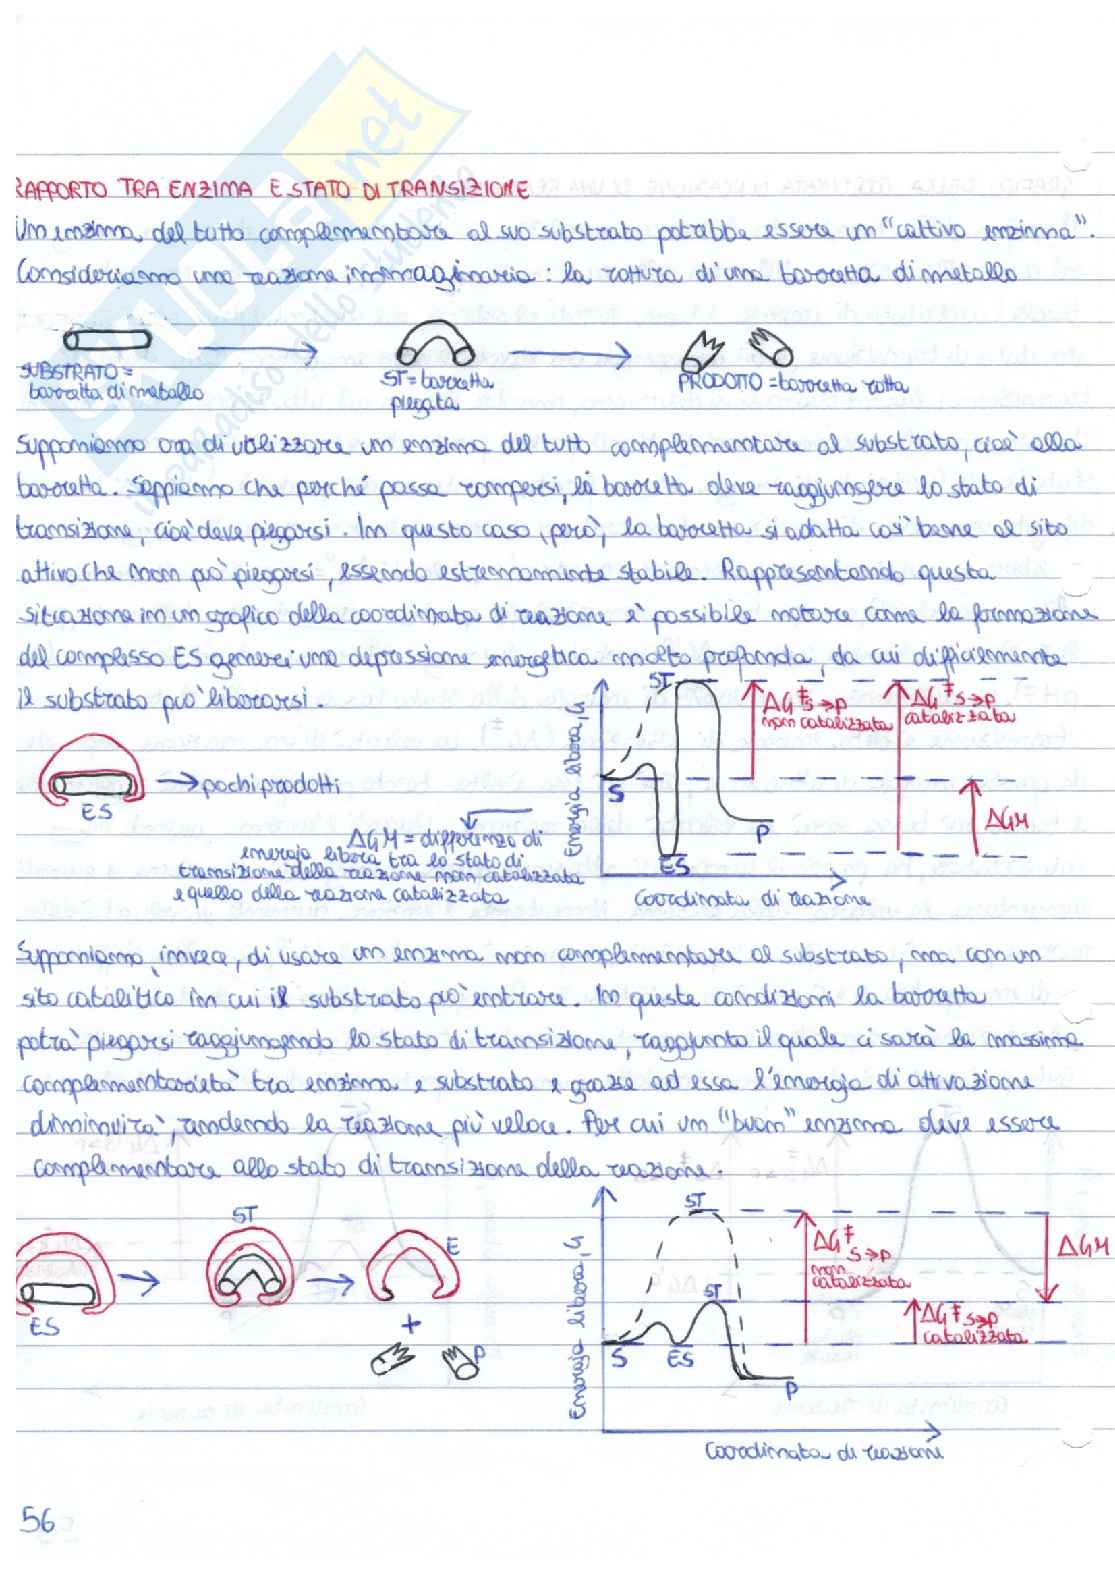 RAPPORTO TRA ENZIMA E STATO DI TRANSIZIONE
Un enzima del tutto complementare al suo substrato potrebbe essere un "cattivo enzima".
Consideriamo una reazione immaginaria: la rottura di una barretta di metallo
SUBSTRATO =
barretta di metallo
ST = barretta
piegata
PRODOTTO = barretta rotta
Supponiamo ora di utilizzare un enzima del tutto complementare al substrato, cioè alla
barretta. Sappiamo che perché possa rompersi, la barretta deve raggiungere lo stato di
transizione, cioè deve piegarsi. In questo caso, però, la barretta si adatta così bene al sito
attivo che non può piegarsi, essendo estremamente stabile. Rappresentando questa
situazione in un grafico della coordinata di reazione è possibile notare come la formazione
del complesso ES generi una depressione energetica molto profonda, da cui difficilmente
il substrato può liberarsi.
ES
→ pochi prodotti
ΔGM = differenza di
energia libera tra lo stato di
transizione della reazione non catalizzata
e quello della reazione catalizzata
Energia libera, G
ST
S
ES
P
ΔG‡ S→P
non catalizzata
ΔG‡ S→P
catalizzata
ΔGM
Coordinata di reazione
Supponiamo, invece, di usare un enzima non complementare al substrato, ma con un
sito catalitico in cui il substrato può entrare. In queste condizioni la barretta
potrà piegarsi raggiungendo lo stato di transizione, raggiunto il quale ci sarà la massima
complementarietà tra enzima e substrato e grazie ad essa l'energia di attivazione
diminuirà, rendendo la reazione più veloce. Per cui un "buon" enzima deve essere
complementare allo stato di transizione della reazione.
ES
ST
E
+
P
Energia libera, G
ST
ST
S
ES
P
ΔG‡ S→P
non
catalizzata
ΔG‡ S→P
catalizzata
ΔGM
Coordinata di reazione
56